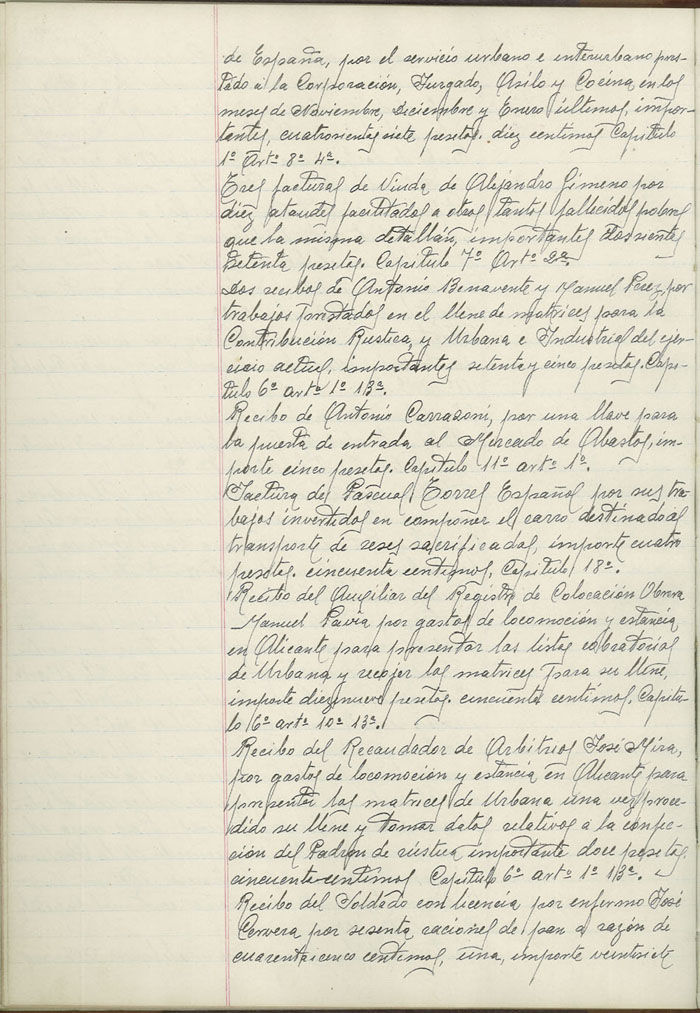 de España, por el servicio urbano e interurbano pres-
tado a la Corporación, Juzgado, Asilo y Cocina, en los
meses de Noviembre, Diciembre y Enero últimos, impor-
tantes, cuatrocientas siete pesetas. diez centimos Capitulo
1º Artº 8º 4º.
Tres facturas de Viuda de Alejandro Gimeno por
diez ataudes facilitados a otros tantos fallecidos pobres
que la misma detallan, importantes doscientas
setenta pesetas. Capitulo 7º Artº 2º.
Dos recibos de Antonio Benavente y Manuel Perez, por
trabajos prestados en el llene de matrices para la
Contribución Rustica, y Urbana e Industrial del ejer-
cicio actual, importantes setenta y cinco pesetas. Capi-
tulo 6º artº 1º 13º.
Recibo de Antonio Carrasoni, por una llave para
la puerta de entrada al Mercado de Abastos, im-
porte cinco pesetas. Capitulo 11º artº 1º.
Factura de Pascual Torres Español por sus tra-
bajos invertidos en componer el carro destinado al
transporte de reses sacrificadas, importe cuatro
pesetas. cincuenta centimos, Capitulo 18º.
Recibo del Auxiliar del Registro de Colocación Obrera
Manuel Pavia por gastos de locomoción y estancia
en Alicante para presentar las listas cobratorias
de Urbana y recojer las matrices para su llene,
importe diez y nueve pesetas. cincuenta centimos. Capitu-
lo 6º artº 10º 13º.
Recibo del Recaudador de Arbitrios José Mira,
por gastos de locomoción y estancia en Alicante para
presentar las matrices de Urbana una vez proce-
dido su llene y tomar datos relativos a la confec-
ción del Padrón de rústica importante doce pesetas
cincuenta centimos Capitulo 6º artº 1º 13º.
Recibo del Soldado con licencia por enfermo José
Cervera por sesenta raciones de pan a razón de
cuarenta i cinco centimos, una, importe veintisiete